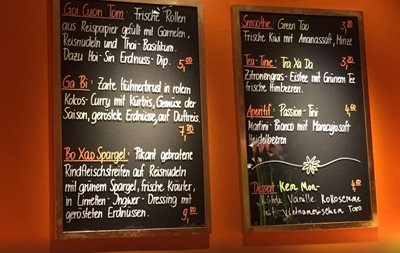 Goi Cuon Tom: Frische Rollen
aus Reispapier gefüllt mit Garnelen,
Reisnudeln und Thai-Basilikum.
Dazu Hoi-Sin Erdnuss-Dip. 5,00
Ga Bi: Zarte Hühnerbrust in rotem
Kokos-Curry mit Kürbis, Gemüse der
Saison, geröstete Erdnüsse, auf Duftreis.
7,80
Bo Xao Spargel: Pikant gebratene
Rindfleischstreifen auf Reisnudeln
mit grünem Spargel, frische Kräuter,
in Limetten-Ingwer-Dressing mit
gerösteten Erdnüssen. 9,80
Smoothie: Green Tao 3,80
Frische Kiwi mit Ananassaft, Minze
Tea-Time: Tra Xa Da 3,80
Zitronengras-Eistee mit Grünem Tee
frische Himbeeren.
Aperitif: Passion-Tini 4,60
Martini-Bianco mit Maracujasaft
Heidelbeeren
Dessert: Kem Mon- 4,00
Vanille Kokoscreme
mit Vietnamesischem Taro